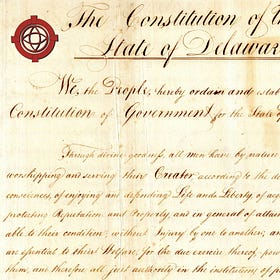 The Constitution of t
State of Delawar
We, the People, hereby ordain and estab
Constitution of Government for the State of
Through divine goodness, all men have by nature
worshipping and serving their Creator according to the d
consciences, of enjoying and defending Life and Liberty, of acq
protecting Reputation and Property, and in general of attain
able to their condition, without Injury by one to another; an
are essential to their Welfare, for the due exercise thereof, po
them; and therefore all just authority in the institutions of